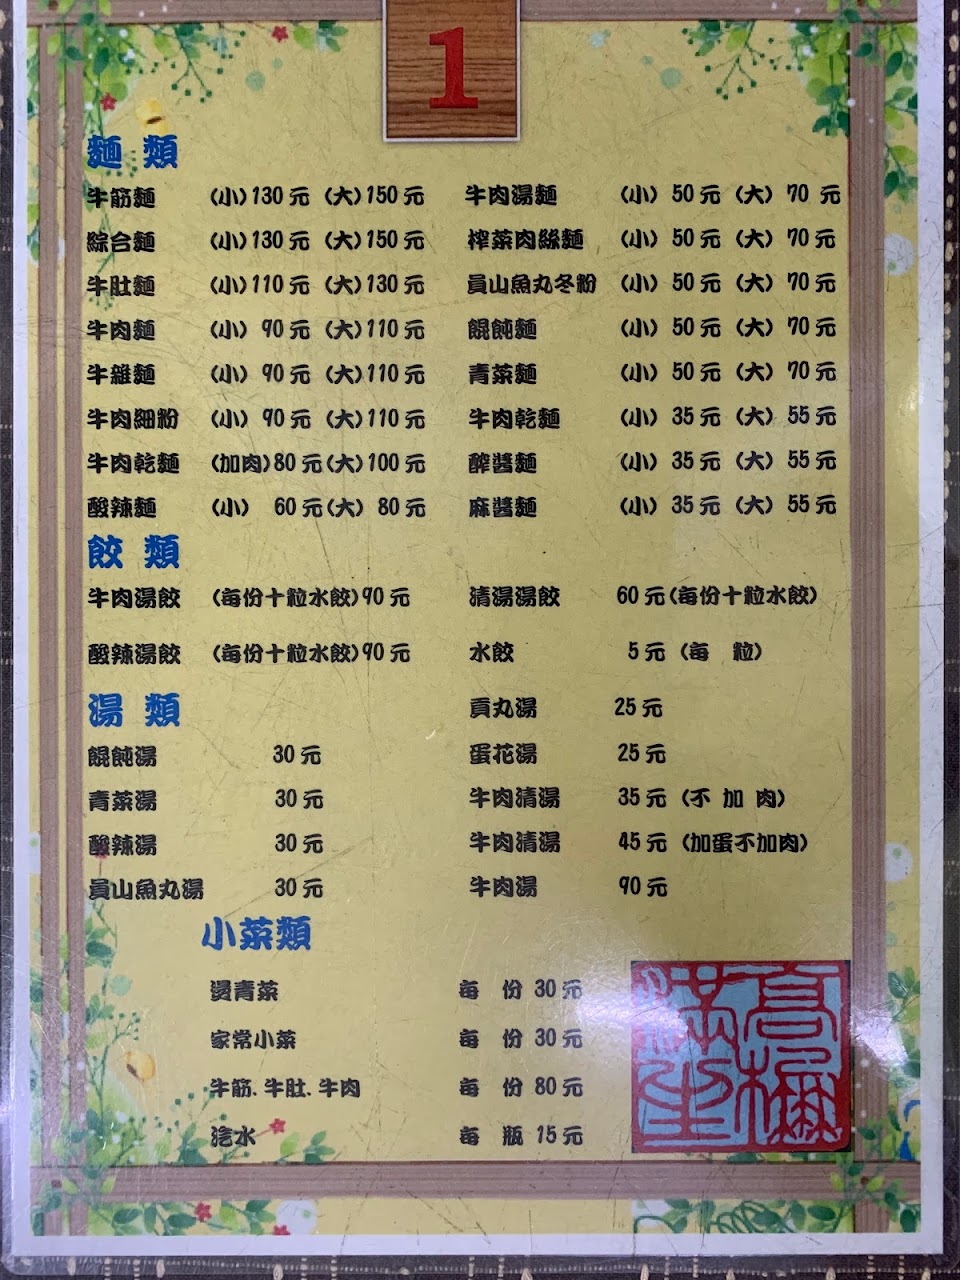 1
麵 類
牛筋麵 (小)130元 (大)150元 牛肉湯麵 (小) 50元 (大) 70 元
綜合麵 (小)130元 (大)150元 榨菜肉絲麵 (小) 50元 (大) 70元
牛肚麵 (小)110元 (大)130元 員山魚丸冬粉 (小) 50元 (大) 70元
牛肉麵 (小) 90元 (大)110元 餛飩麵 (小) 50元 (大) 70元
牛雜麵 (小) 90元 (大)110元 青菜麵 (小) 50元 (大) 70元
牛肉細粉 (小) 90元 (大)110元 牛肉乾麵 (小) 35元 (大) 55元
牛肉乾麵 (加肉)80元(大)100元 醡醬麵 (小) 35元 (大) 55元
酸辣麵 (小) 60元(大) 80元 麻醬麵 (小) 35元 (大) 55元
餃 類
牛肉湯餃 (每份十粒水餃)90元 清湯湯餃 60元(每份十粒水餃)
酸辣湯餃 (每份十粒水餃)90元 水餃 5元 (每 粒)
湯 類 貢丸湯 25元
餛飩湯 30元 蛋花湯 25元
青菜湯 30元 牛肉清湯 35元 (不 加 肉)
酸辣湯 30元 牛肉清湯 45元 (加蛋不加肉)
員山魚丸湯 30元 牛肉湯 90元
小菜類
燙青菜 每 份 30元
家常小菜 每 份 30元
牛筋.牛肚.牛肉 每 份 80元
汽水 每 瓶 15元